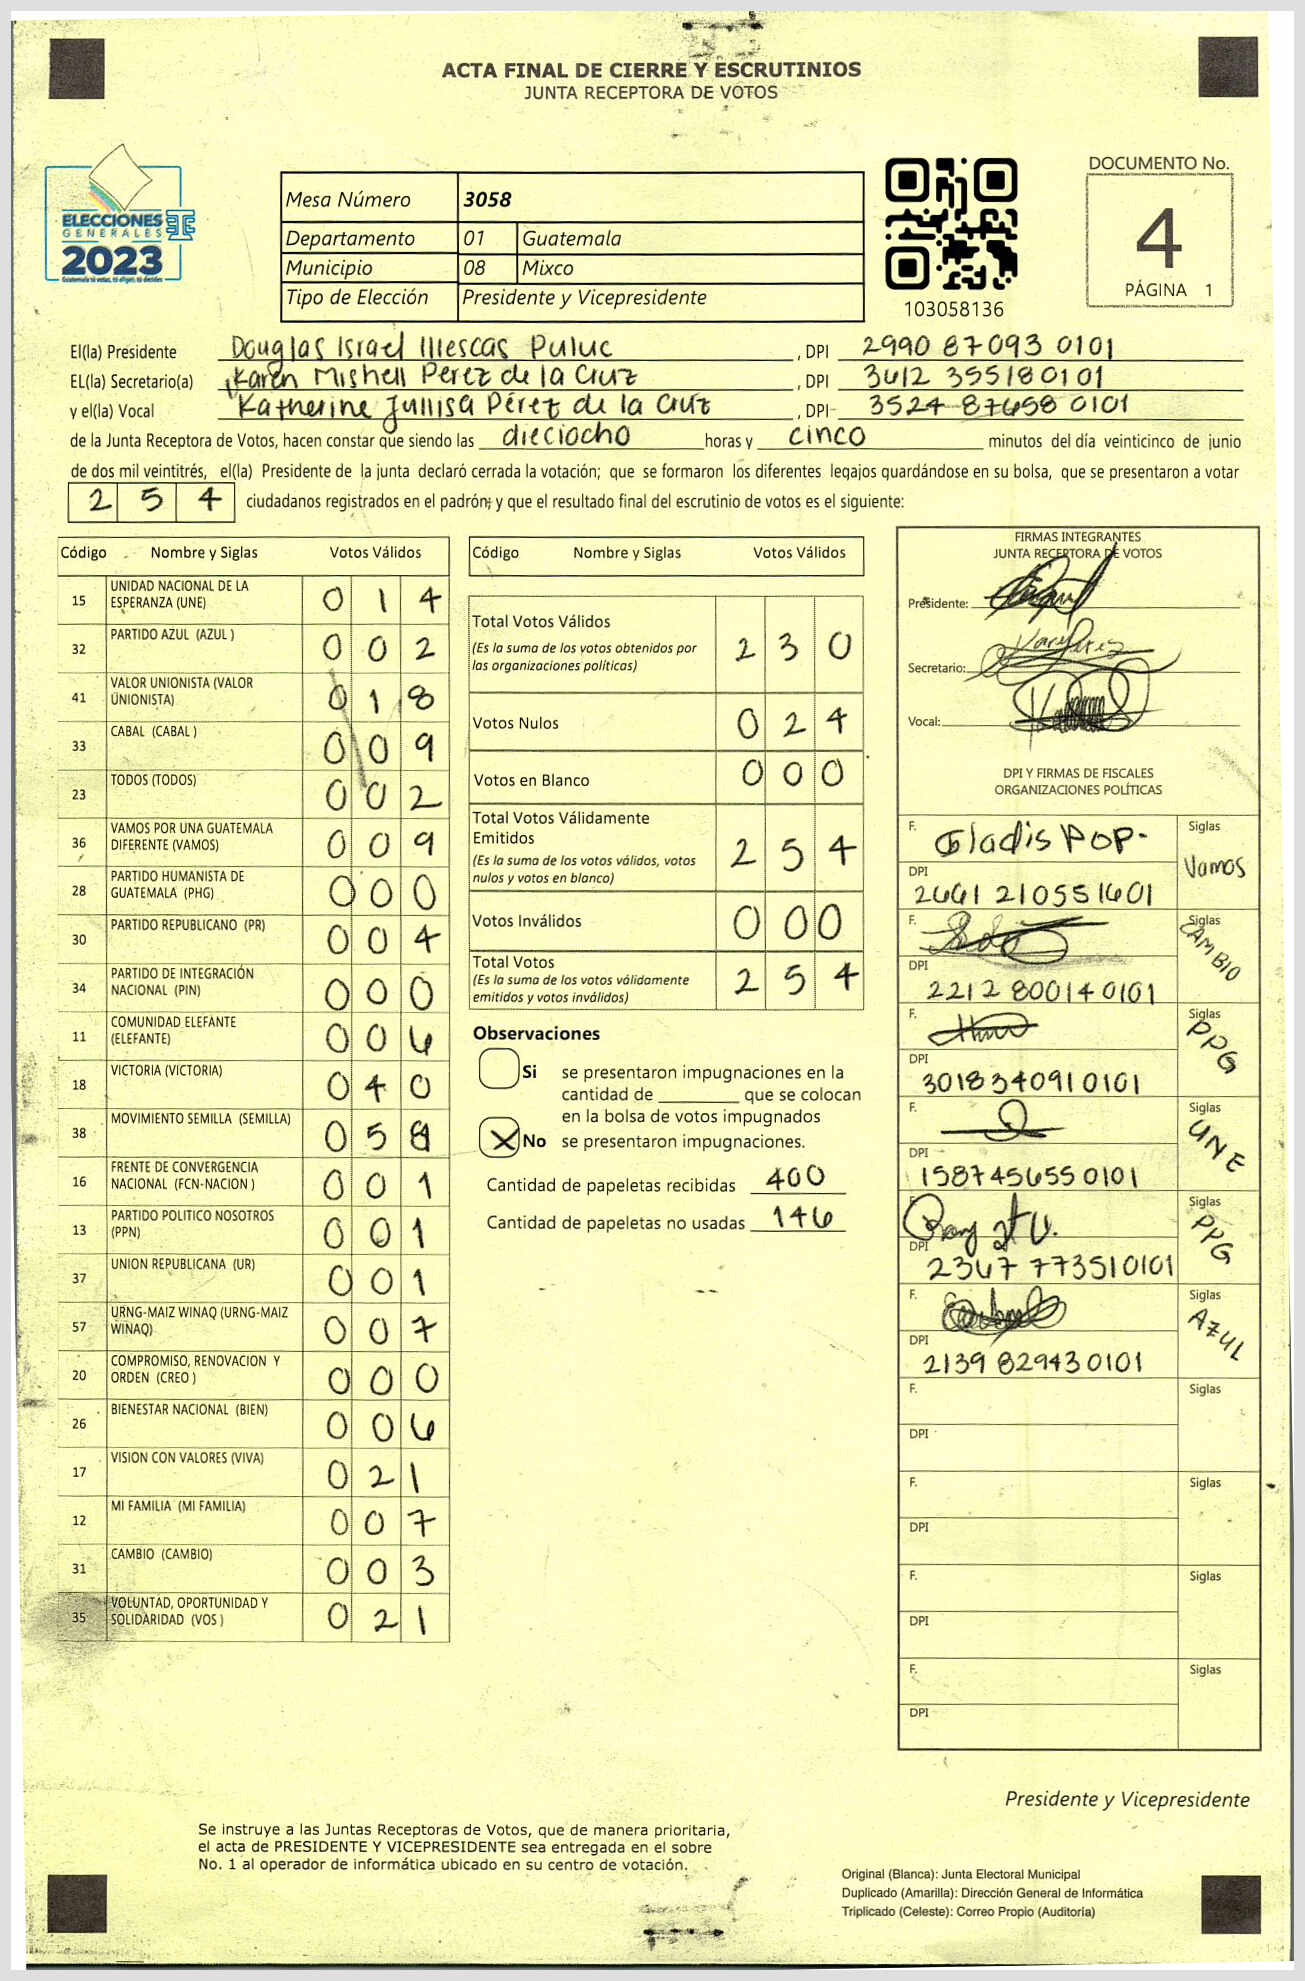 ACTA FINAL DE CIERRE Y ESCRUTINIOS
JUNTA RECEPTORA DE VOTOS
ELECCIONES
GENERALES
2023
Guatemala tú votas, tú eliges, tú decides
Mesa Número 3058
Departamento 01 Guatemala
Municipio 08 Mixco
Tipo de Elección Presidente y Vicepresidente
103058136
DOCUMENTO No.
4
PÁGINA 1
El(la) Presidente Douglas Israel Illescas Puluc , DPI 2990 87093 0101
EL(la) Secretario(a) Karen Mishell Perez de la Cruz , DPI 3612 35518 0101
y el(la) Vocal Katherine Jullisa Pérez de la Cruz , DPI 3524 87658 0101
de la Junta Receptora de Votos, hacen constar que siendo las dieciocho horas y cinco minutos del día veinticinco de junio
de dos mil veintitrés, el(la) Presidente de la junta declaró cerrada la votación; que se formaron los diferentes legajos guardándose en su bolsa, que se presentaron a votar
2 5 4 ciudadanos registrados en el padrón; y que el resultado final del escrutinio de votos es el siguiente:
Código Nombre y Siglas Votos Válidos
15 UNIDAD NACIONAL DE LA ESPERANZA (UNE) 0 1 4
32 PARTIDO AZUL (AZUL ) 0 0 2
41 VALOR UNIONISTA (VALOR UNIONISTA) 0 1 8
33 CABAL (CABAL ) 0 0 9
23 TODOS (TODOS) 0 0 2
36 VAMOS POR UNA GUATEMALA DIFERENTE (VAMOS) 0 0 9
28 PARTIDO HUMANISTA DE GUATEMALA (PHG) 0 0 0
30 PARTIDO REPUBLICANO (PR) 0 0 4
34 PARTIDO DE INTEGRACIÓN NACIONAL (PIN) 0 0 0
11 COMUNIDAD ELEFANTE (ELEFANTE) 0 0 6
18 VICTORIA (VICTORIA) 0 4 0
38 MOVIMIENTO SEMILLA (SEMILLA) 0 5
16 FRENTE DE CONVERGENCIA NACIONAL (FCN-NACION ) 0 0 1
13 PARTIDO POLITICO NOSOTROS (PPN) 0 0 1
37 UNION REPUBLICANA (UR) 0 0 1
57 URNG-MAIZ WINAQ (URNG-MAIZ WINAQ) 0 0 7
20 COMPROMISO, RENOVACION Y ORDEN (CREO ) 0 0 0
26 BIENESTAR NACIONAL (BIEN) 0 0 6
17 VISION CON VALORES (VIVA) 0 2 1
12 MI FAMILIA (MI FAMILIA) 0 0 7
31 CAMBIO (CAMBIO) 0 0 3
35 VOLUNTAD, OPORTUNIDAD Y SOLIDARIDAD (VOS ) 0 2 1
Código Nombre y Siglas Votos Válidos
Total Votos Válidos 2 3 0
(Es la suma de los votos obtenidos por
las organizaciones políticas)
Votos Nulos 0 2 4
Votos en Blanco 0 0 0
Total Votos Válidamente
Emitidos 2 5 4
(Es la suma de los votos válidos, votos
nulos y votos en blanco)
Votos Inválidos 0 0 0
Total Votos 2 5 4
(Es la suma de los votos válidamente
emitidos y votos inválidos)
Observaciones
Si se presentaron impugnaciones en la
cantidad de ________ que se colocan
en la bolsa de votos impugnados
X No se presentaron impugnaciones.
Cantidad de papeletas recibidas 400
Cantidad de papeletas no usadas 146
FIRMAS INTEGRANTES
JUNTA RECEPTORA DE VOTOS
Presidente:
Secretario:
Vocal:
DPI Y FIRMAS DE FISCALES
ORGANIZACIONES POLÍTICAS
F. Gladis Pop. Siglas Vamos
DPI 2661 21055 1601
F. Siglas CAMBIO
DPI 2212 80014 0101
F. Siglas PPG
DPI 3018 34091 0101
F. Siglas UNE
DPI 1587 45655 0101
Siglas PPG
DPI 2367 77351 0101
F. Siglas AZUL
DPI 2139 82943 0101
F. Siglas
DPI
F. Siglas
DPI
F. Siglas
DPI
F. Siglas
DPI
Presidente y Vicepresidente
Se instruye a las Juntas Receptoras de Votos, que de manera prioritaria,
el acta de PRESIDENTE Y VICEPRESIDENTE sea entregada en el sobre
No. 1 al operador de informática ubicado en su centro de votación.
Original (Blanca): Junta Electoral Municipal
Duplicado (Amarilla): Dirección General de Informática
Triplicado (Celeste): Correo Propio (Auditoría)